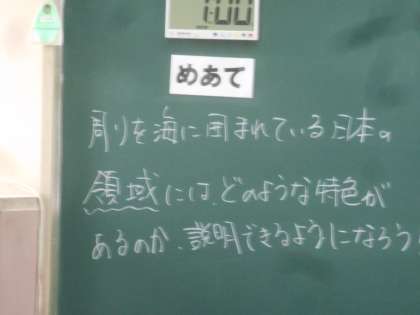 1:00
めあて
周りを海に囲まれている日本の
領域には、どのような特色が
あるのか、説明できるようになろう!